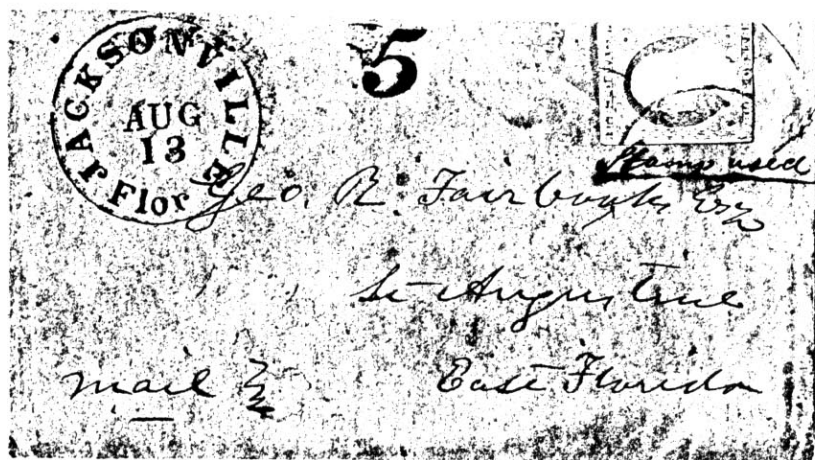 JACKSONVILLE
AUG
13
Flor
5
Stamp used
Geo. R. Fairbanks Esq
St Augustine
East Florida
mail